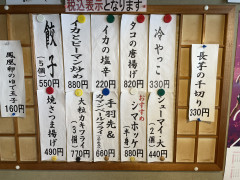 税込表示となります
長芋の千切り
330円
冷やっこ
330円
タコの唐揚げ
820円
イカの塩辛
220円
イカとピーマン炒め
880円
餃子
(5個)
550円
鳳凰卵のゆで玉子
160円
シューマイ大
(2個)
440円
おすすめ
シマホッケ
(半身)
880円
手羽先&
660円
大粒カキフライ
(3個)
770円
焼きつま揚げ
490円